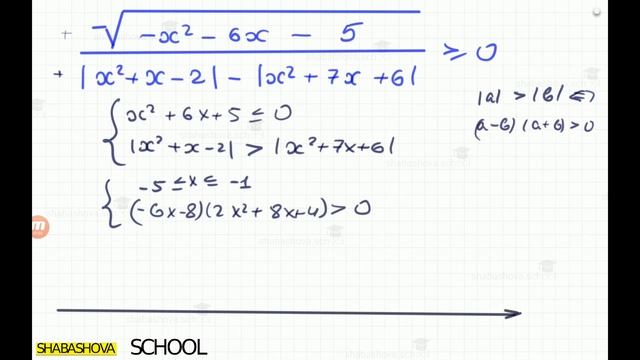 √(-x² - 6x - 5)
|x² + x - 2| - |x² + 7x + 6| ≥ 0
x² + 6x + 5 ≤ 0
|a| > |b| ⇔
|x² + x - 2| > |x² + 7x + 6|
(a - b)(a + b) > 0
-5 ≤ x ≤ -1
(-6x - 8)(2x² + 8x + 4) > 0
SHABASHOVA SCHOOL